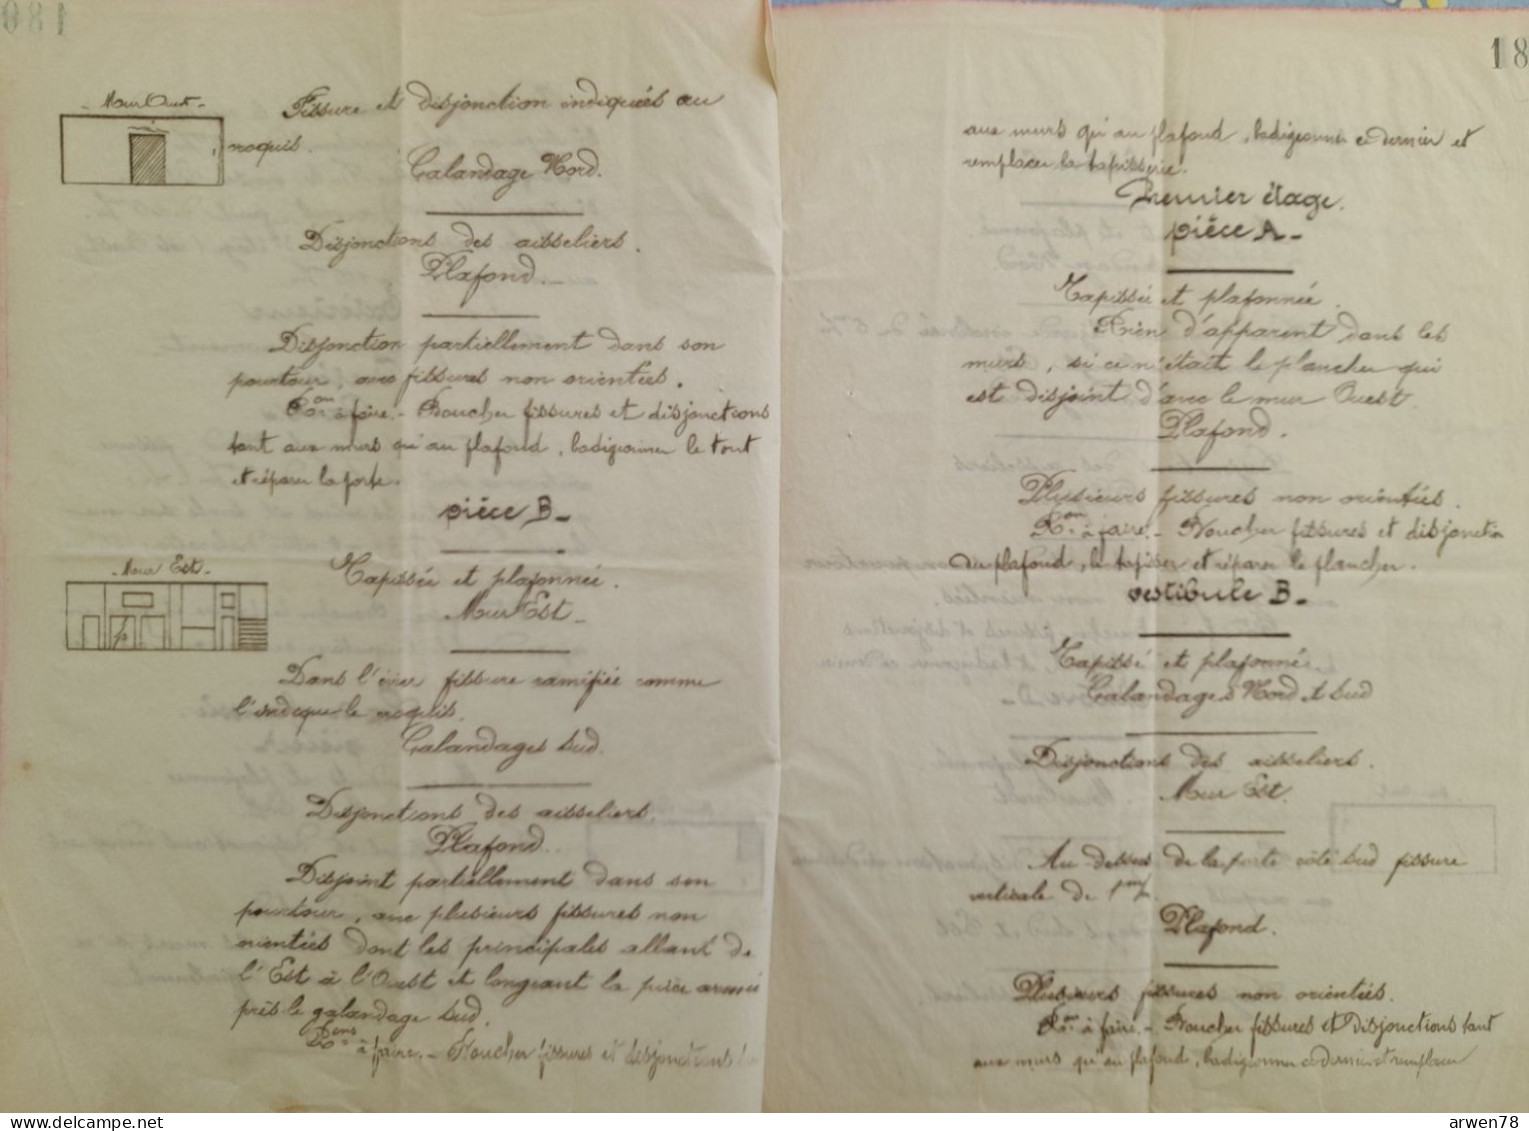 - Mur Ouest -
Fissure et disjonction indiquées au
croquis.
Galandage Nord.
Disjonctions des aisseliers.
Plafond. -
Disjonction partiellement dans son
pourtour, avec fissures non orientées.
Rons à faire. - Boucher fissures et disjonctions
tant aux murs qu'au plafond, badigeonner le tout
et réparer la porte.
pièce B -
- Mur Est -
Tapissée et plafonnée.
Mur Est -
Dans l'  fissure ramifiée comme
l'indique le croquis.
Galandages Sud.
Disjonctions des aisseliers.
Plafond.
Disjoint partiellement dans son
pourtour, avec plusieurs fissures non
orientées dont les principales allant de
l'Est à l'Ouest et longeant la
près le galandage Sud.
Rons à faire. - Boucher fissures et disjonctions
18
aux murs qu'au plafond, badigeonner ce dernier et
remplacer la tapisserie.
Premier étage.
pièce A -
Tapissée et plafonnée.
Rien d'apparent dans les
murs, si ce n'était le plancher qui
est disjoint d'avec le mur Ouest.
Plafond.
Plusieurs fissures non orientées.
Ron à faire. - Boucher fissures et disjonction
du plafond, le tapisser et réparer le plancher.
vestibule B -
Tapissé et plafonné.
Galandages Nord et Sud
Disjonctions des aisseliers.
Mur Est.
Au dessus de la porte côté Sud fissure
verticale de 1 m/m.
Plafond.
Plusieurs fissures non orientées.
Ron à faire. - Boucher fissures et disjonctions tant
aux murs qu'au plafond, badigeonner ce dernier et remplacer
arwen78